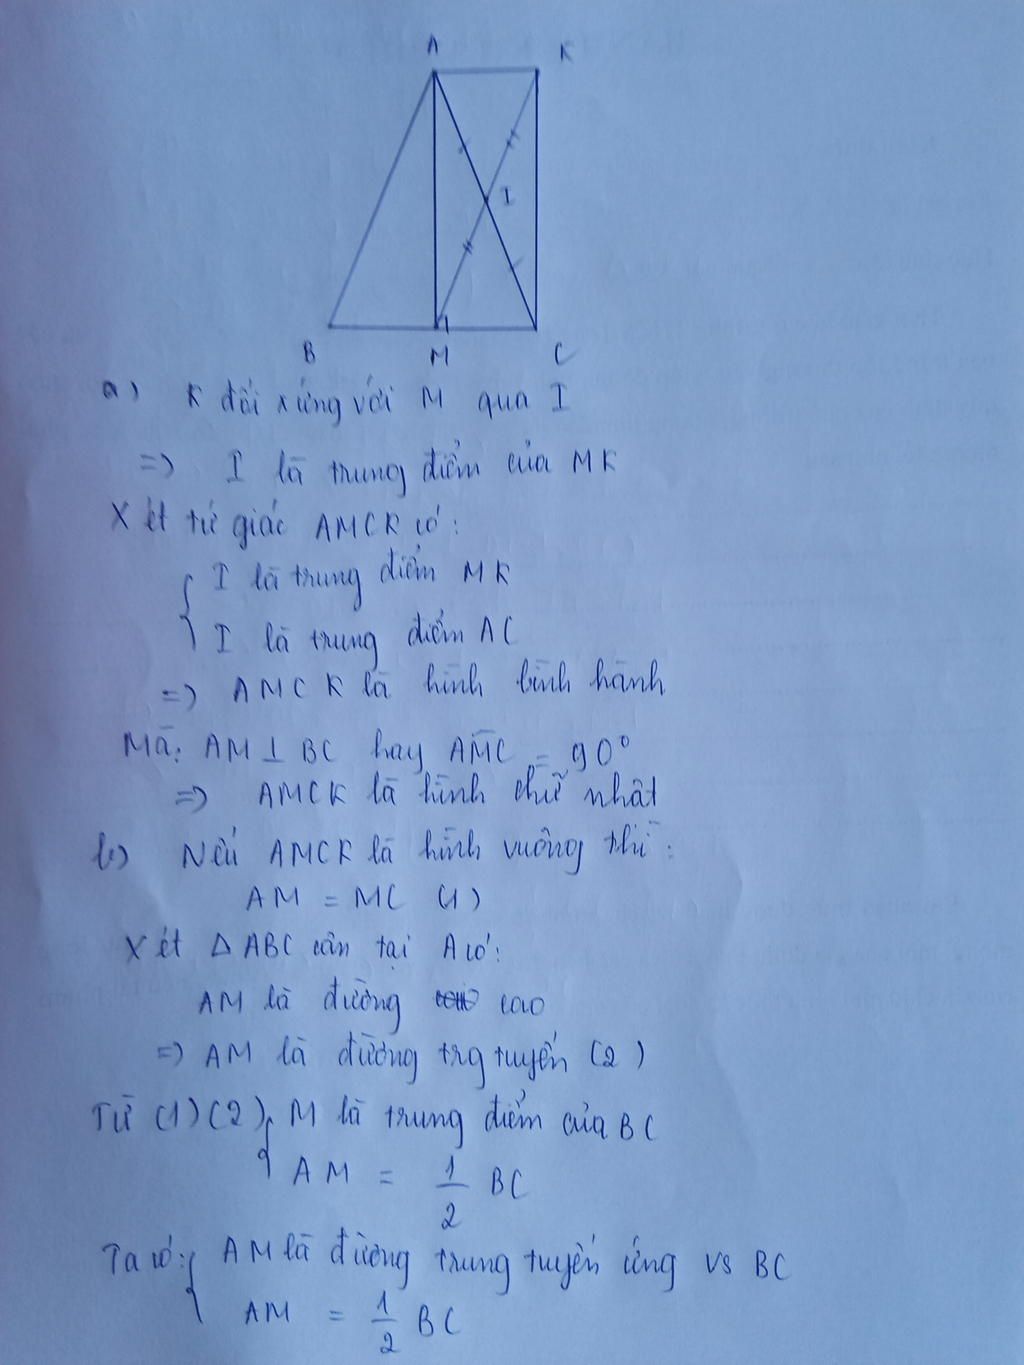 A K
I
B M C
a) K đối xứng với M qua I
=> I là trung điểm của MK
Xét tứ giác AMCK có:
I là trung điểm MK
I là trung điểm AC
=> AMCK là hình bình hành
Mà: AM ⊥ BC hay AMC = 90°
=> AMCK là hình chữ nhật
b) Nếu AMCK là hình vuông thì:
AM = MC (1)
Xét Δ ABC cân tại A có:
AM là đường cao
=> AM là đường trg tuyến (2)
Từ (1)(2) { M là trung điểm của BC
AM = 1/2 BC
Ta có: { AM là đường trung tuyến ứng vs BC
AM = 1/2 BC